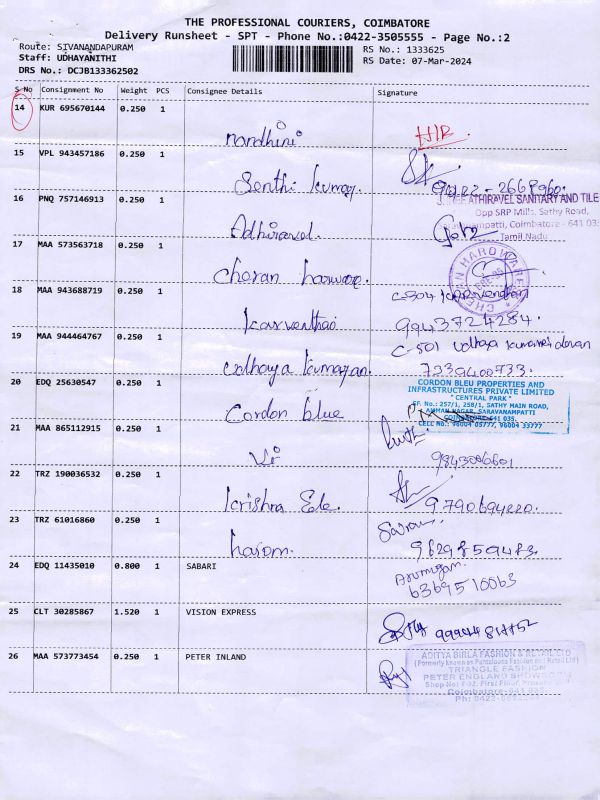 THE PROFESSIONAL COURIERS, COIMBATORE
Delivery Runsheet - SPT - Phone No.:0422-3505555 - Page No.:2
Route: SIVANANDAPURAM
Staff: UDHAYANITHI
DRS No.: DCJB133362502
RS No.: 1333625
RS Date: 07-Mar-2024
S No Consignment No Weight PCS Consignee Details Signature
14 KUR 695670144 0.250 1
nandhini
15 VPL 943457186 0.250 1
Senthi kumar
16 PNQ 757146913 0.250 1
ATHIRAVEL SANITARY AND TILE
Opp SRP Mills, Sathy Road,
Coimbatore - 641 035
Tamil Nadu
Adhiravel.
17 MAA 573563718 0.250 1
Cheran
CHERAN HARDWARES
18 MAA 943688719 0.250 1
C-304
9943724284.
19 MAA 944464767 0.250 1
C-501
7339400733.
20 EDQ 25630547 0.250 1
Cordon blue
CORDON BLEU PROPERTIES AND
INFRASTRUCTURES PRIVATE LIMITED
" CENTRAL PARK "
SF. No.: 257/1, 258/1, SATHY MAIN ROAD,
AMMAN NAGAR, SARAVANAMPATTI
COIMBATORE - 641 035.
CELL No.: 96004 05777, 96004 33777
21 MAA 865112915 0.250 1
Vi
9843006601
22 TRZ 190036532 0.250 1
krishna
9790694220.
23 TRZ 61016860 0.250 1
9629859483.
24 EDQ 11435010 0.800 1 SABARI
Arumugam
6369510063
25 CLT 30285867 1.520 1 VISION EXPRESS
26 MAA 573773454 0.250 1 PETER INLAND
ADITYA BIRLA FASHION & RETAIL LTD
(Formerly known as Pantaloons Fashion and Retail Ltd)
TRIANGLE FASHION
PETER ENGLAND SHOWROOM
Coimbatore-641 035